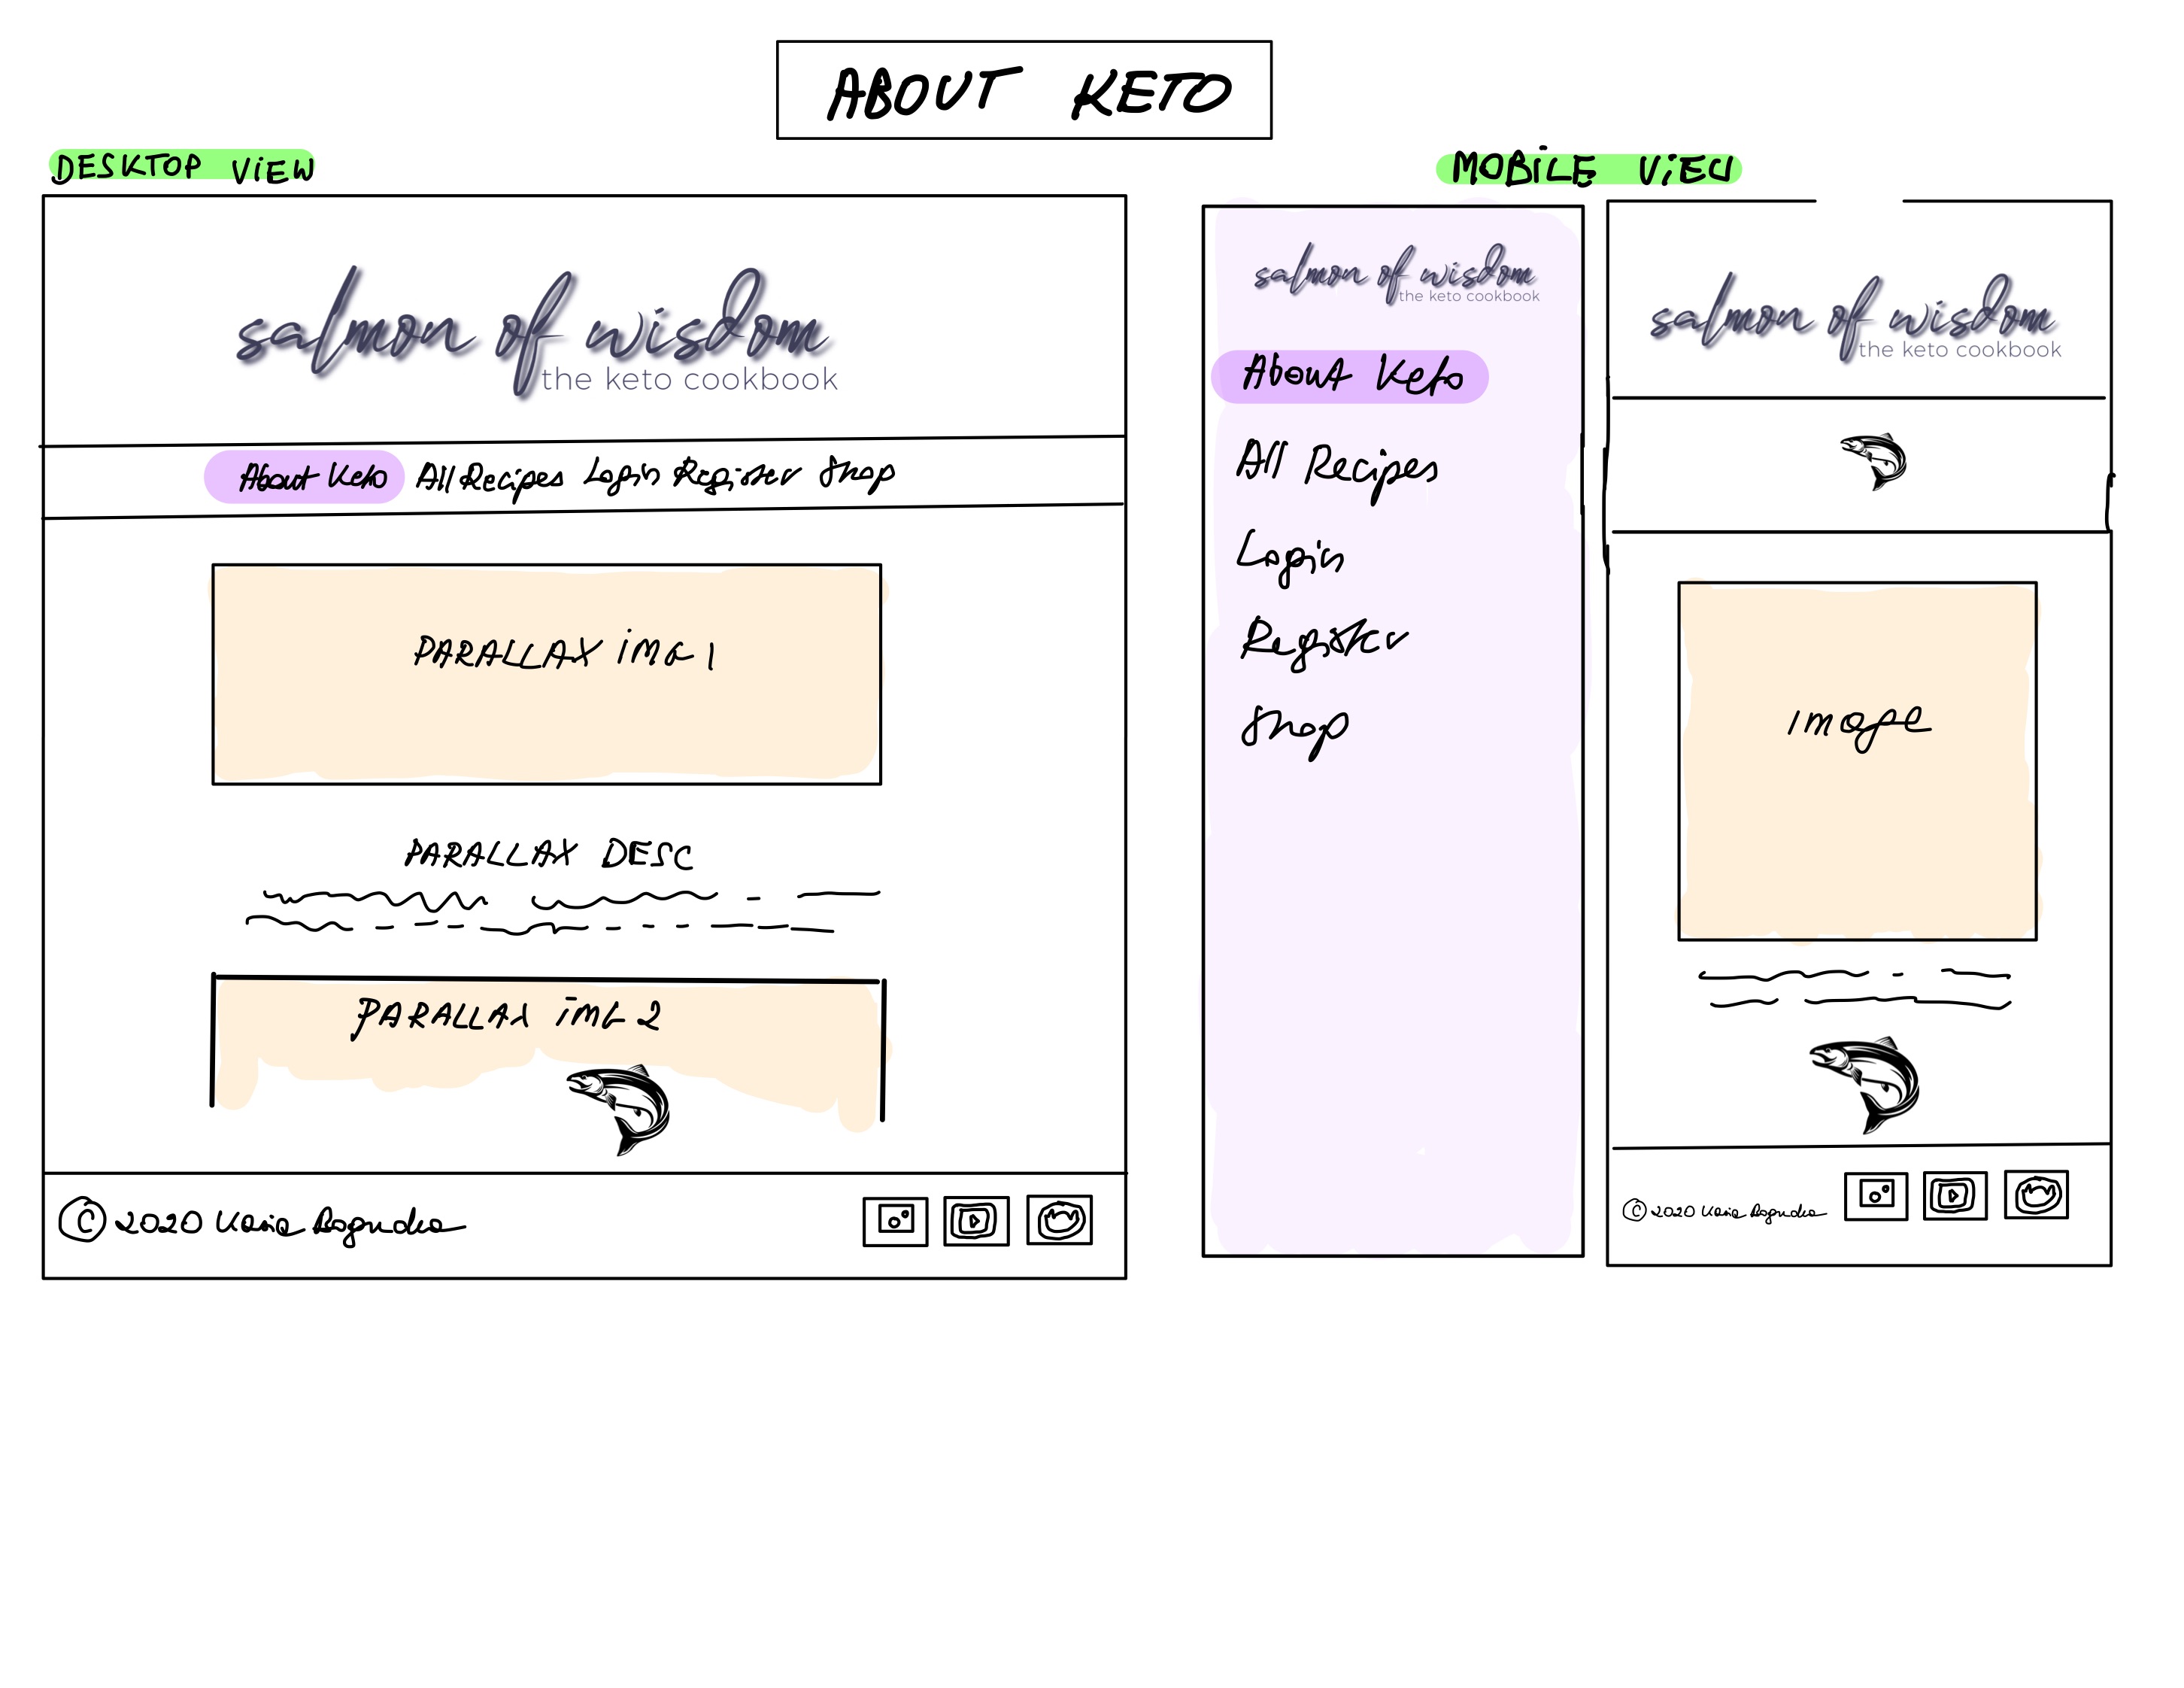 ABOUT KETO
DESKTOP VIEW
salmon of wisdom
the keto cookbook
About Keto All Recipes Login Register Shop
PARALLAX IMG 1
PARALLAX DESC
PARALLAX IMG 2
© 2020 Kasia
MOBILE VIEW
salmon of wisdom
the keto cookbook
About Keto
All Recipes
Login
Register
Shop
salmon of wisdom
the keto cookbook
image
© 2020 Kasia